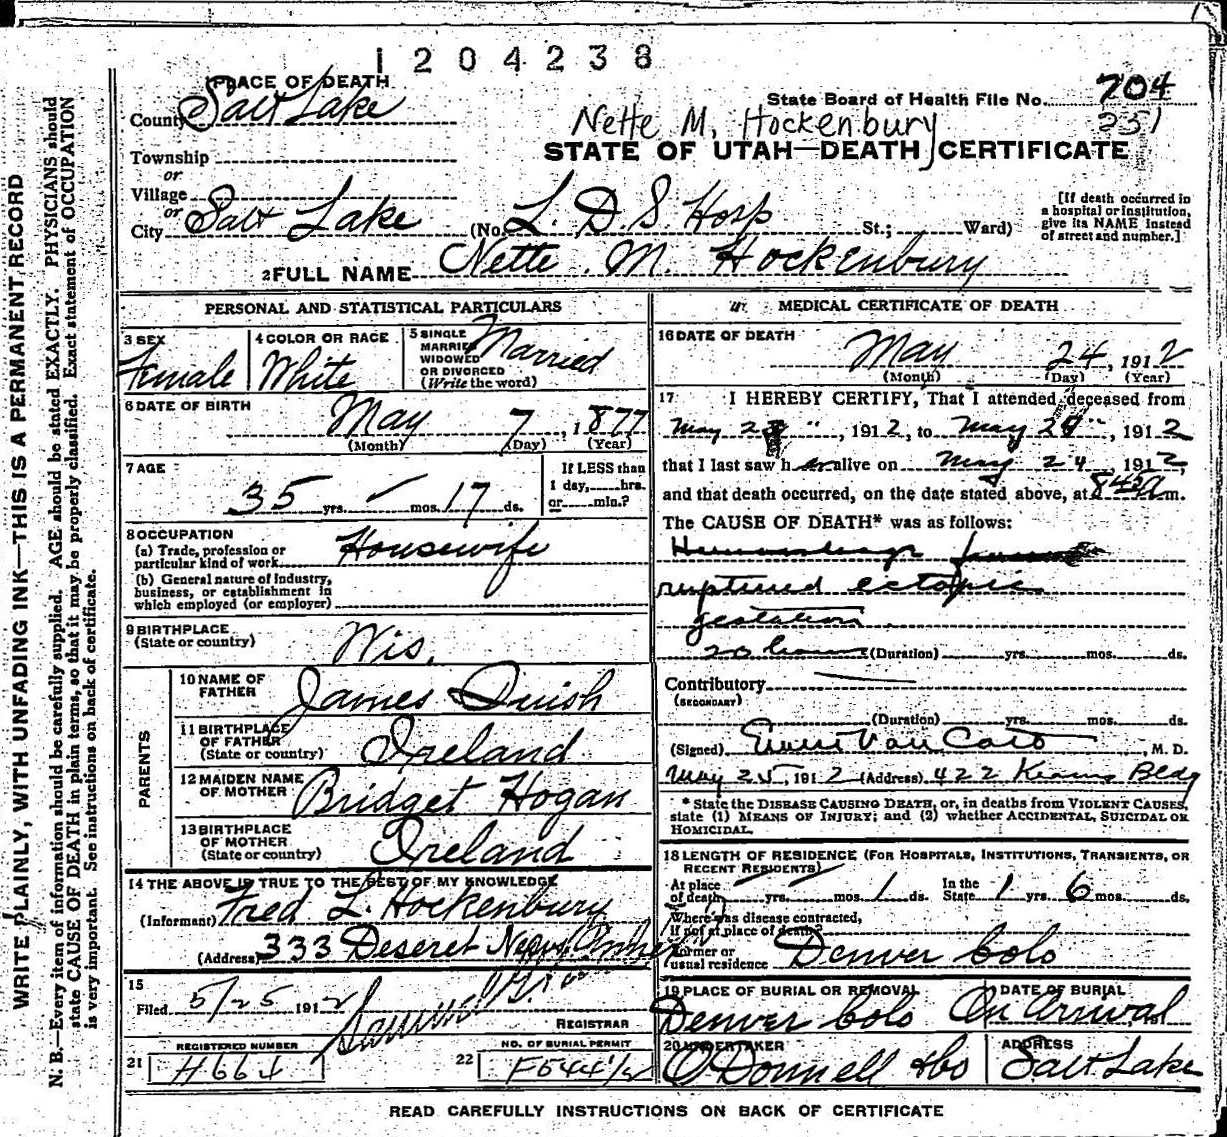 1204238
PLACE OF DEATH
County Salt Lake
State Board of Health File No. 704
251
Nette M. Hockenbury
STATE OF UTAH—DEATH CERTIFICATE
Township
or
Village
or
City Salt Lake (No. L. D. S Hosp St.; Ward)
[If death occurred in a hospital or institution, give its NAME instead of street and number.]
2 FULL NAME Nette M. Hockenbury
PERSONAL AND STATISTICAL PARTICULARS
3 SEX
Female
4 COLOR OR RACE
White
5 SINGLE
MARRIED
WIDOWED
OR DIVORCED
(Write the word)
Married
6 DATE OF BIRTH
May 7, 1877
(Month) (Day) (Year)
7 AGE
35 yrs. mos. 17 ds.
If LESS than
1 day, hrs.
or min.?
8 OCCUPATION
(a) Trade, profession or
particular kind of work Housewife
(b) General nature of industry,
business, or establishment in
which employed (or employer)
9 BIRTHPLACE
(State or country) Wis.
PARENTS
10 NAME OF
FATHER James Quish
11 BIRTHPLACE
OF FATHER
(State or country) Ireland
12 MAIDEN NAME
OF MOTHER Bridget Hogan
13 BIRTHPLACE
OF MOTHER
(State or country) Ireland
14 THE ABOVE IS TRUE TO THE BEST OF MY KNOWLEDGE
(Informant) Fred L. Hockenbury
(Address) 333 Deseret News
15
Filed 5/25 1912
REGISTRAR
REGISTERED NUMBER
21 H664
NO. OF BURIAL PERMIT
22
MEDICAL CERTIFICATE OF DEATH
16 DATE OF DEATH
May 24, 1912
(Month) (Day) (Year)
17 I HEREBY CERTIFY, That I attended deceased from
May 23", 1912, to May 24", 1912
that I last saw her alive on May 24 1912,
and that death occurred, on the date stated above, at m.
The CAUSE OF DEATH* was as follows:
Hemorrhage from
ruptured ectopic
gestation.
20 hours (Duration) yrs. mos. ds.
Contributory
(SECONDARY)
(Duration) yrs. mos. ds.
(Signed) , M. D.
May 25, 1912 (Address) 422 Kearns Bldg
* State the DISEASE CAUSING DEATH, or, in deaths from VIOLENT CAUSES,
state (1) MEANS OF INJURY; and (2) whether ACCIDENTAL, SUICIDAL OR
HOMICIDAL.
18 LENGTH OF RESIDENCE (FOR HOSPITALS, INSTITUTIONS, TRANSIENTS, OR
RECENT RESIDENTS)
At place
of death yrs. mos. 1 ds. In the
State 1 yrs. 6 mos. ds.
Where was disease contracted,
If not at place of death?
Former or
usual residence Denver Colo
19 PLACE OF BURIAL OR REMOVAL
Denver Colo
DATE OF BURIAL
On Arrival, 191
20 UNDERTAKER
O'Donnell & Co
ADDRESS
Salt Lake
READ CAREFULLY INSTRUCTIONS ON BACK OF CERTIFICATE
WRITE PLAINLY, WITH UNFADING INK—THIS IS A PERMANENT RECORD
N. B.—Every item of information should be carefully supplied. AGE should be stated EXACTLY. PHYSICIANS should
state CAUSE OF DEATH in plain terms, so that it may be properly classified. Exact statement of OCCUPATION
is very important. See instructions on back of certificate.